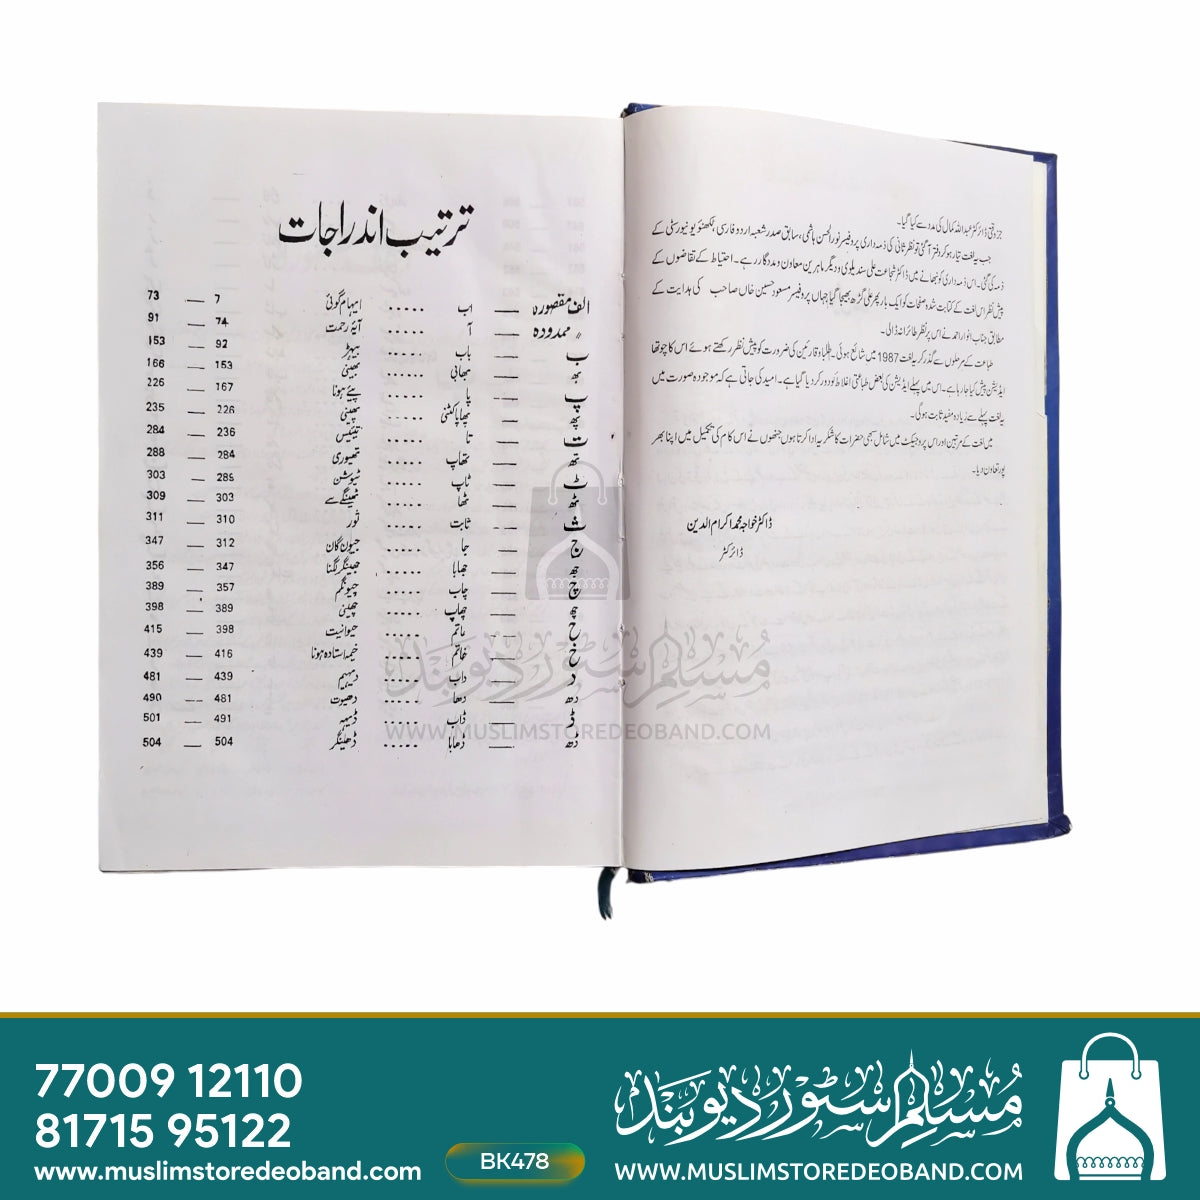 جزوقتی ڈائرکٹر عبداللہ کمال کی مدد سے کیا گیا۔
جب یہ لغت تیار ہو کر دفتر آ گئی تو نظر ثانی کی ذمہ داری پروفیسر نور الحسن ہاشمی، سابق صدر شعبہ اردو فارسی، لکھنؤ یونیورسٹی کے
ذمہ کی گئی۔ اس ذمہ داری کو نبھانے میں ڈاکٹر شجاعت علی سندیلوی و دیگر ماہرین معاون و مددگار رہے۔ احتیاط کے تقاضوں کے
پیش نظر اس لغت کے کتابت شدہ صفحات کو ایک بار پھر علی گڑھ بھیجا گیا جہاں پروفیسر مسعود حسین خاں صاحب کی ہدایت کے
مطابق جناب انوار احمد نے اس پر نظر طائرانہ ڈالی۔
طباعت کے مرحلوں سے گذر کر یہ لغت 1987 میں شائع ہوئی۔ طلباء و قارئین کی ضرورت کو پیش نظر رکھتے ہوئے اس کا چوتھا
ایڈیشن پیش کیا جا رہا ہے۔ اس میں پہلے ایڈیشن کی بعض طباعتی اغلاط کو دور کر دیا گیا ہے۔ امید کی جاتی ہے کہ موجودہ صورت میں
یہ لغت پہلے سے زیادہ مفید ثابت ہوگی۔
میں لغت کے مرتبین اور اس پروجیکٹ میں شامل سبھی حضرات کا شکریہ ادا کرتا ہوں جنھوں نے اس کام کی تکمیل میں اپنا بھر
پور تعاون دیا۔
ڈاکٹر خواجہ محمد اکرام الدین
ڈائرکٹر
ترتیب اندراجات
الف مقصورہ — اب ..... ایہام گوئی 7 — 73
〃 ممدودہ — آ ..... آیۂ رحمت 74 — 91
ب — باب ..... بیہڑ 92 — 153
بھ — بھابی ..... بھینی 153 — 166
پ — پا ..... پئے ہونا 167 — 226
پھ — پھاپا کٹنی ..... پھینی 226 — 235
ت — تا ..... تیئیس 236 — 284
تھ — تھاپ ..... تھیوری 284 — 288
ٹ — ٹاپ ..... ٹیوشن 288 — 303
ٹھ — ٹھا ..... ٹھینگے سے 303 — 309
ث — ثابت ..... ثور 310 — 311
ج — جا ..... جیون گان 312 — 347
جھ — جھابا ..... جھینگر لگنا 347 — 356
چ — چاب ..... چیونگم 357 — 389
چھ — چھاپ ..... چھینی 389 — 398
ح — حاتم ..... حیوانیت 398 — 415
خ — خاتم ..... خیمہ استادہ ہونا 416 — 439
د — داب ..... دیہیم 439 — 481
دھ — دھا ..... دھیوت 481 — 490
ڈ — ڈاب ..... ڈیہہ 491 — 501
ڈھ — ڈھابا ..... ڈھینگر 504 — 504
مسلم سٹور دیوبند
WWW.MUSLIMSTOREDEOBAND.COM
77009 12110
81715 95122
www.muslimstoredeoband.com
BK478
مسلم سٹور دیوبند
WWW.MUSLIMSTOREDEOBAND.COM